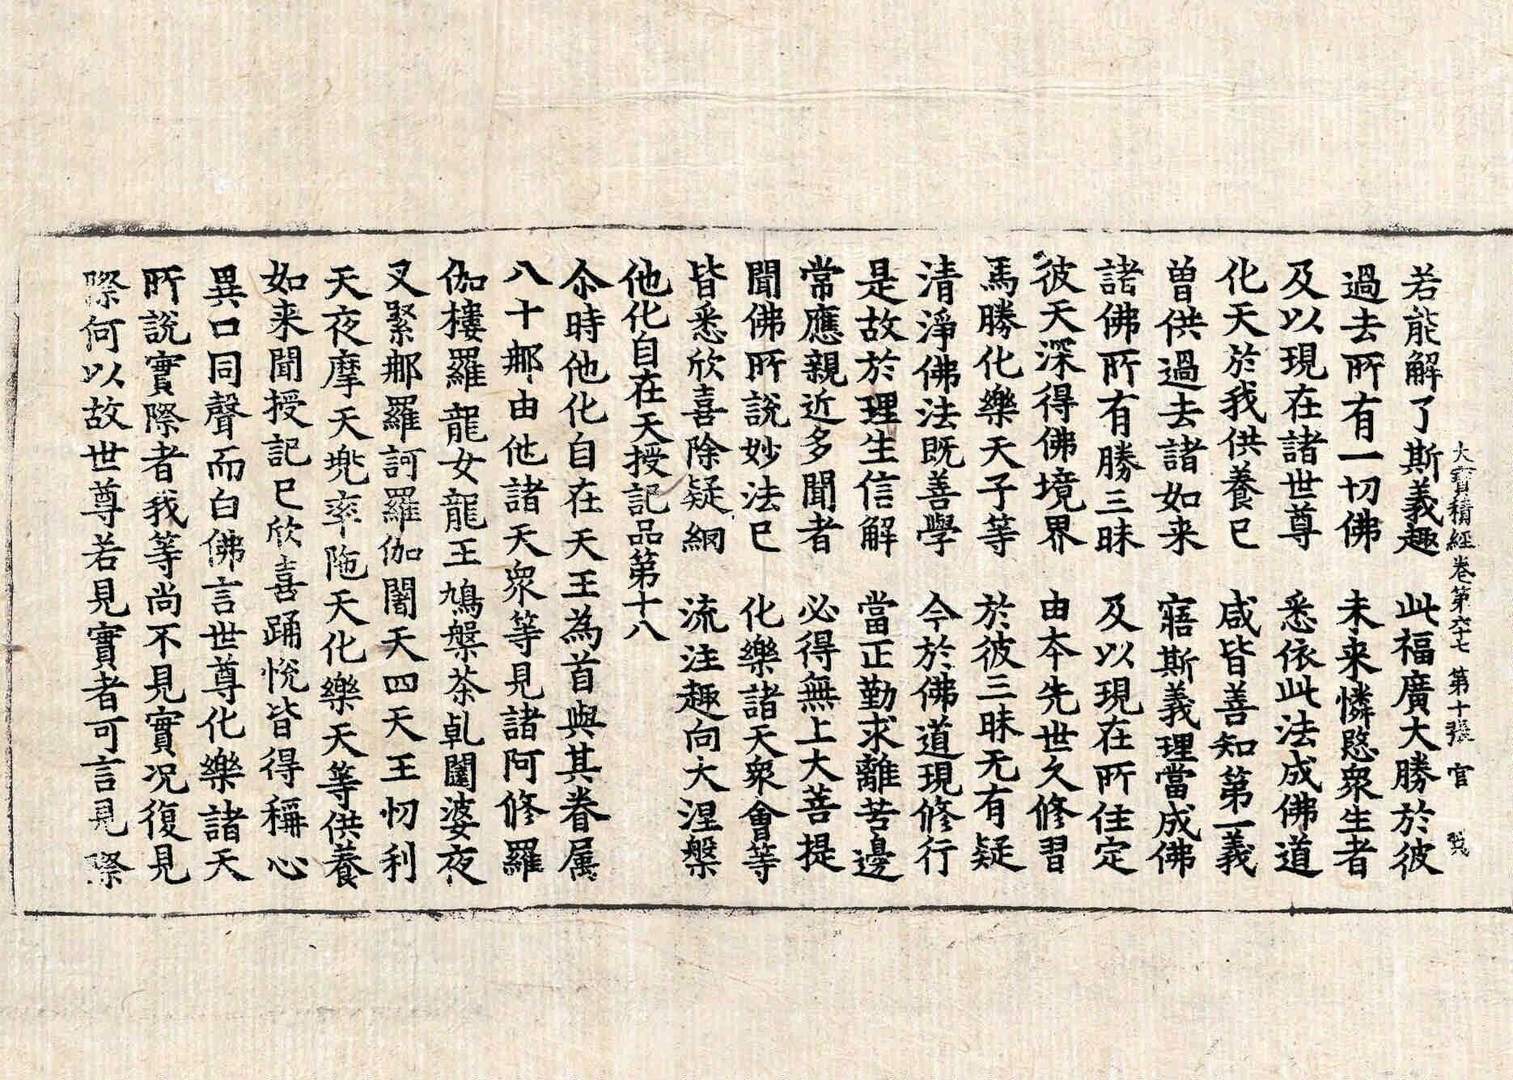 大寶積經卷第六十七 第十張 官
若能解了斯義趣 此福廣大勝於彼
過去所有一切佛 未来憐愍衆生者
及以現在諸世尊 悉依此法成佛道
化天於我供養已 咸皆善知第一義
曽供過去諸如来 寤斯義理當成佛
諸佛所有勝三昧 及以現在所住定
彼天深得佛境界 由夲先世久修習
馬勝化樂天子等 於彼三昧无有疑
清淨佛法既善學 今於佛道現修行
是故於理生信解 當正勤求離苦邊
常應親近多聞者 必得無上大菩提
聞佛所說妙法已 化樂諸天衆會等
皆悉欣喜除疑網 流注趣向大涅槃
他化自在天授記品第十八
尒時他化自在天王為首與其眷属
八十那由他諸天衆等見諸阿修羅
伽樓羅龍女龍王鳩槃荼乹闥婆夜
叉緊那羅訶羅伽闍天四天王忉利
天夜摩天兠率陁天化樂天等供養
如来聞授記已欣喜踊悅皆得稱心
異口同聲而白佛言世尊化樂諸天
所說實際者我等尚不見實況復見
際何以故世尊若見實者可言見際